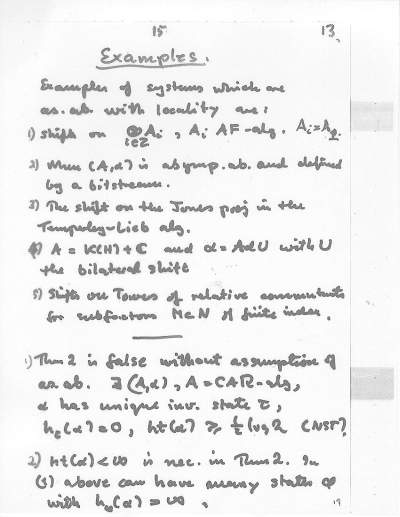 15 13.
Examples.
Examples of systems which are
as. ab. with locality are:
1) shifts on ⊗_{i∈Z} A_i , A_i AF-alg. A_i = A_0.
2) When (A,α) is asymp. ab. and defined
by a bitstream.
3) The shift on the Jones proj in the
Temperley-Lieb alg.
4) A = K(H) + C and α = Ad U with U
the bilateral shift
5) Shifts on Towers of relative commutants
for subfactors M⊂N of finite index.
1) Thm 2 is false without assumption of
as. ab. ∃ (A,α), A = CAR-alg,
α has unique inv. state τ,
h_τ(α) = 0, ht(α) ≥ ½ log 2 (NST).
2) ht(α) < ∞ is nec. in Thm 2. In
(5) above can have many states φ
with h_φ(α) = ∞ .